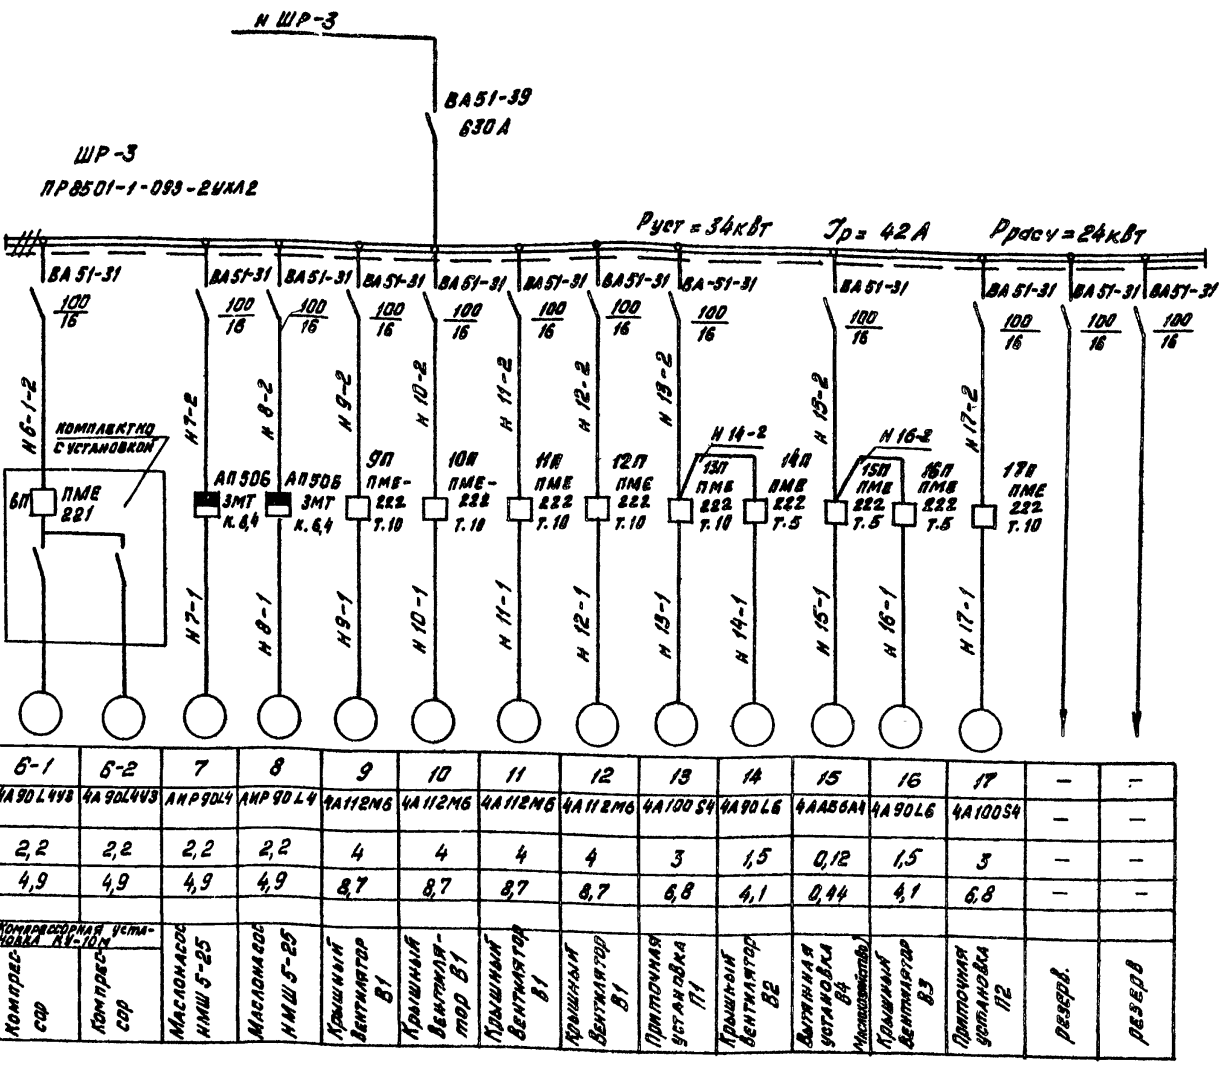 Н ШР-3
ВА51-39
630А
ШР-3
ПР8501-1-093-2УХЛ2
Руст=34кВт Iр=42А Ррасч=24кВт
ВА51-31 ВА51-31 ВА51-31 ВА51-31 ВА51-31 ВА51-31 ВА51-31 ВА-51-31 ВА51-31 ВА51-31 ВА51-31 ВА51-31
100 100 100 100 100 100 100 100 100 100 100 100
16 16 16 16 16 16 16 16 16 16 16 16
Н6-1-2 Н7-2 Н8-2 Н9-2 Н10-2 Н11-2 Н12-2 Н13-2 Н15-2 Н17-2
Н14-2 Н16-2
КОМПЛЕКТНО
С УСТАНОВКОЙ
6П ПМЕ
221
АП50Б
3МТ
К.6,4
АП50Б
3МТ
К.6,4
9П
ПМЕ-
222
Т.10
10П
ПМЕ-
222
Т.10
11П
ПМЕ
222
Т.10
12П
ПМЕ
222
Т.10
13П
ПМЕ
222
Т.10
14П
ПМЕ
222
Т.5
15П
ПМЕ
222
Т.5
16П
ПМЕ
222
Т.5
17П
ПМЕ
222
Т.10
Н7-1 Н8-1 Н9-1 Н10-1 Н11-1 Н12-1 Н13-1 Н14-1 Н15-1 Н16-1 Н17-1
6-1 6-2 7 8 9 10 11 12 13 14 15 16 17 - -
4А90L4У3 4А90L4У3 АИР90L4 АИР90L4 4А112М6 4А112М6 4А112М6 4А112М6 4А100S4 4А90L6 4АА56А4 4А90L6 4А100S4 - -
2,2 2,2 2,2 2,2 4 4 4 4 3 1,5 0,12 1,5 3 - -
4,9 4,9 4,9 4,9 8,7 8,7 8,7 8,7 6,8 4,1 0,44 4,1 6,8 - -
КОМПРЕССОРНАЯ УСТА-
НОВКА КУ-10М
Компрес-
сор
Компрес-
сор
Маслонасос
НМШ 5-25
Маслонасос
НМШ 5-25
Крышный
Вентилятор
В1
Крышный
Вентиля-
тор В1
Крышный
Вентилятор
В1
Крышный
Вентилятор
В1
Приточная
установка
П1
Крышный
Вентилятор
В2
Вытяжная
установка
В4
Крышный
Вентилятор
В3
Приточная
установка
П2
резерв.
резерв